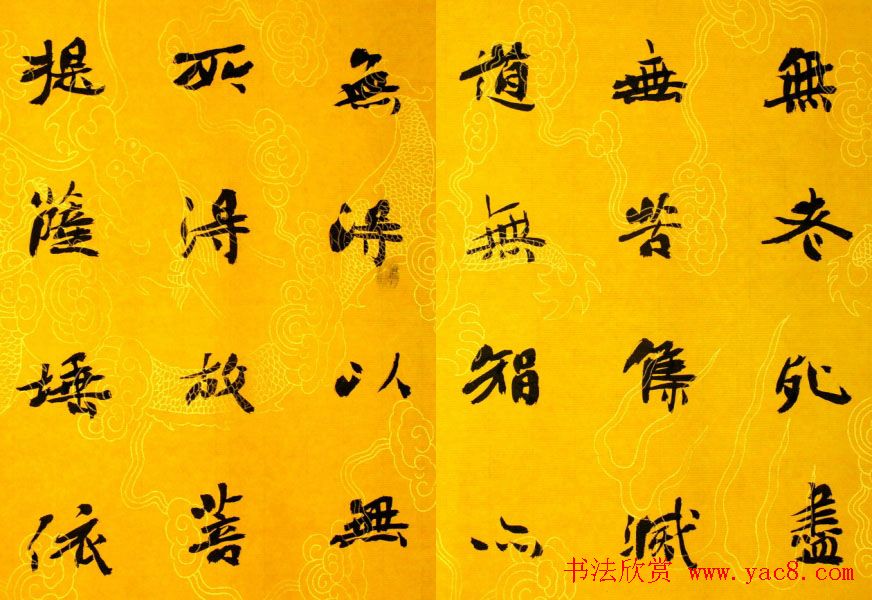 無老死盡
無苦集滅
道無智亦
無得以無
所得故菩
提薩埵依
书法欣赏 www.yac8.com